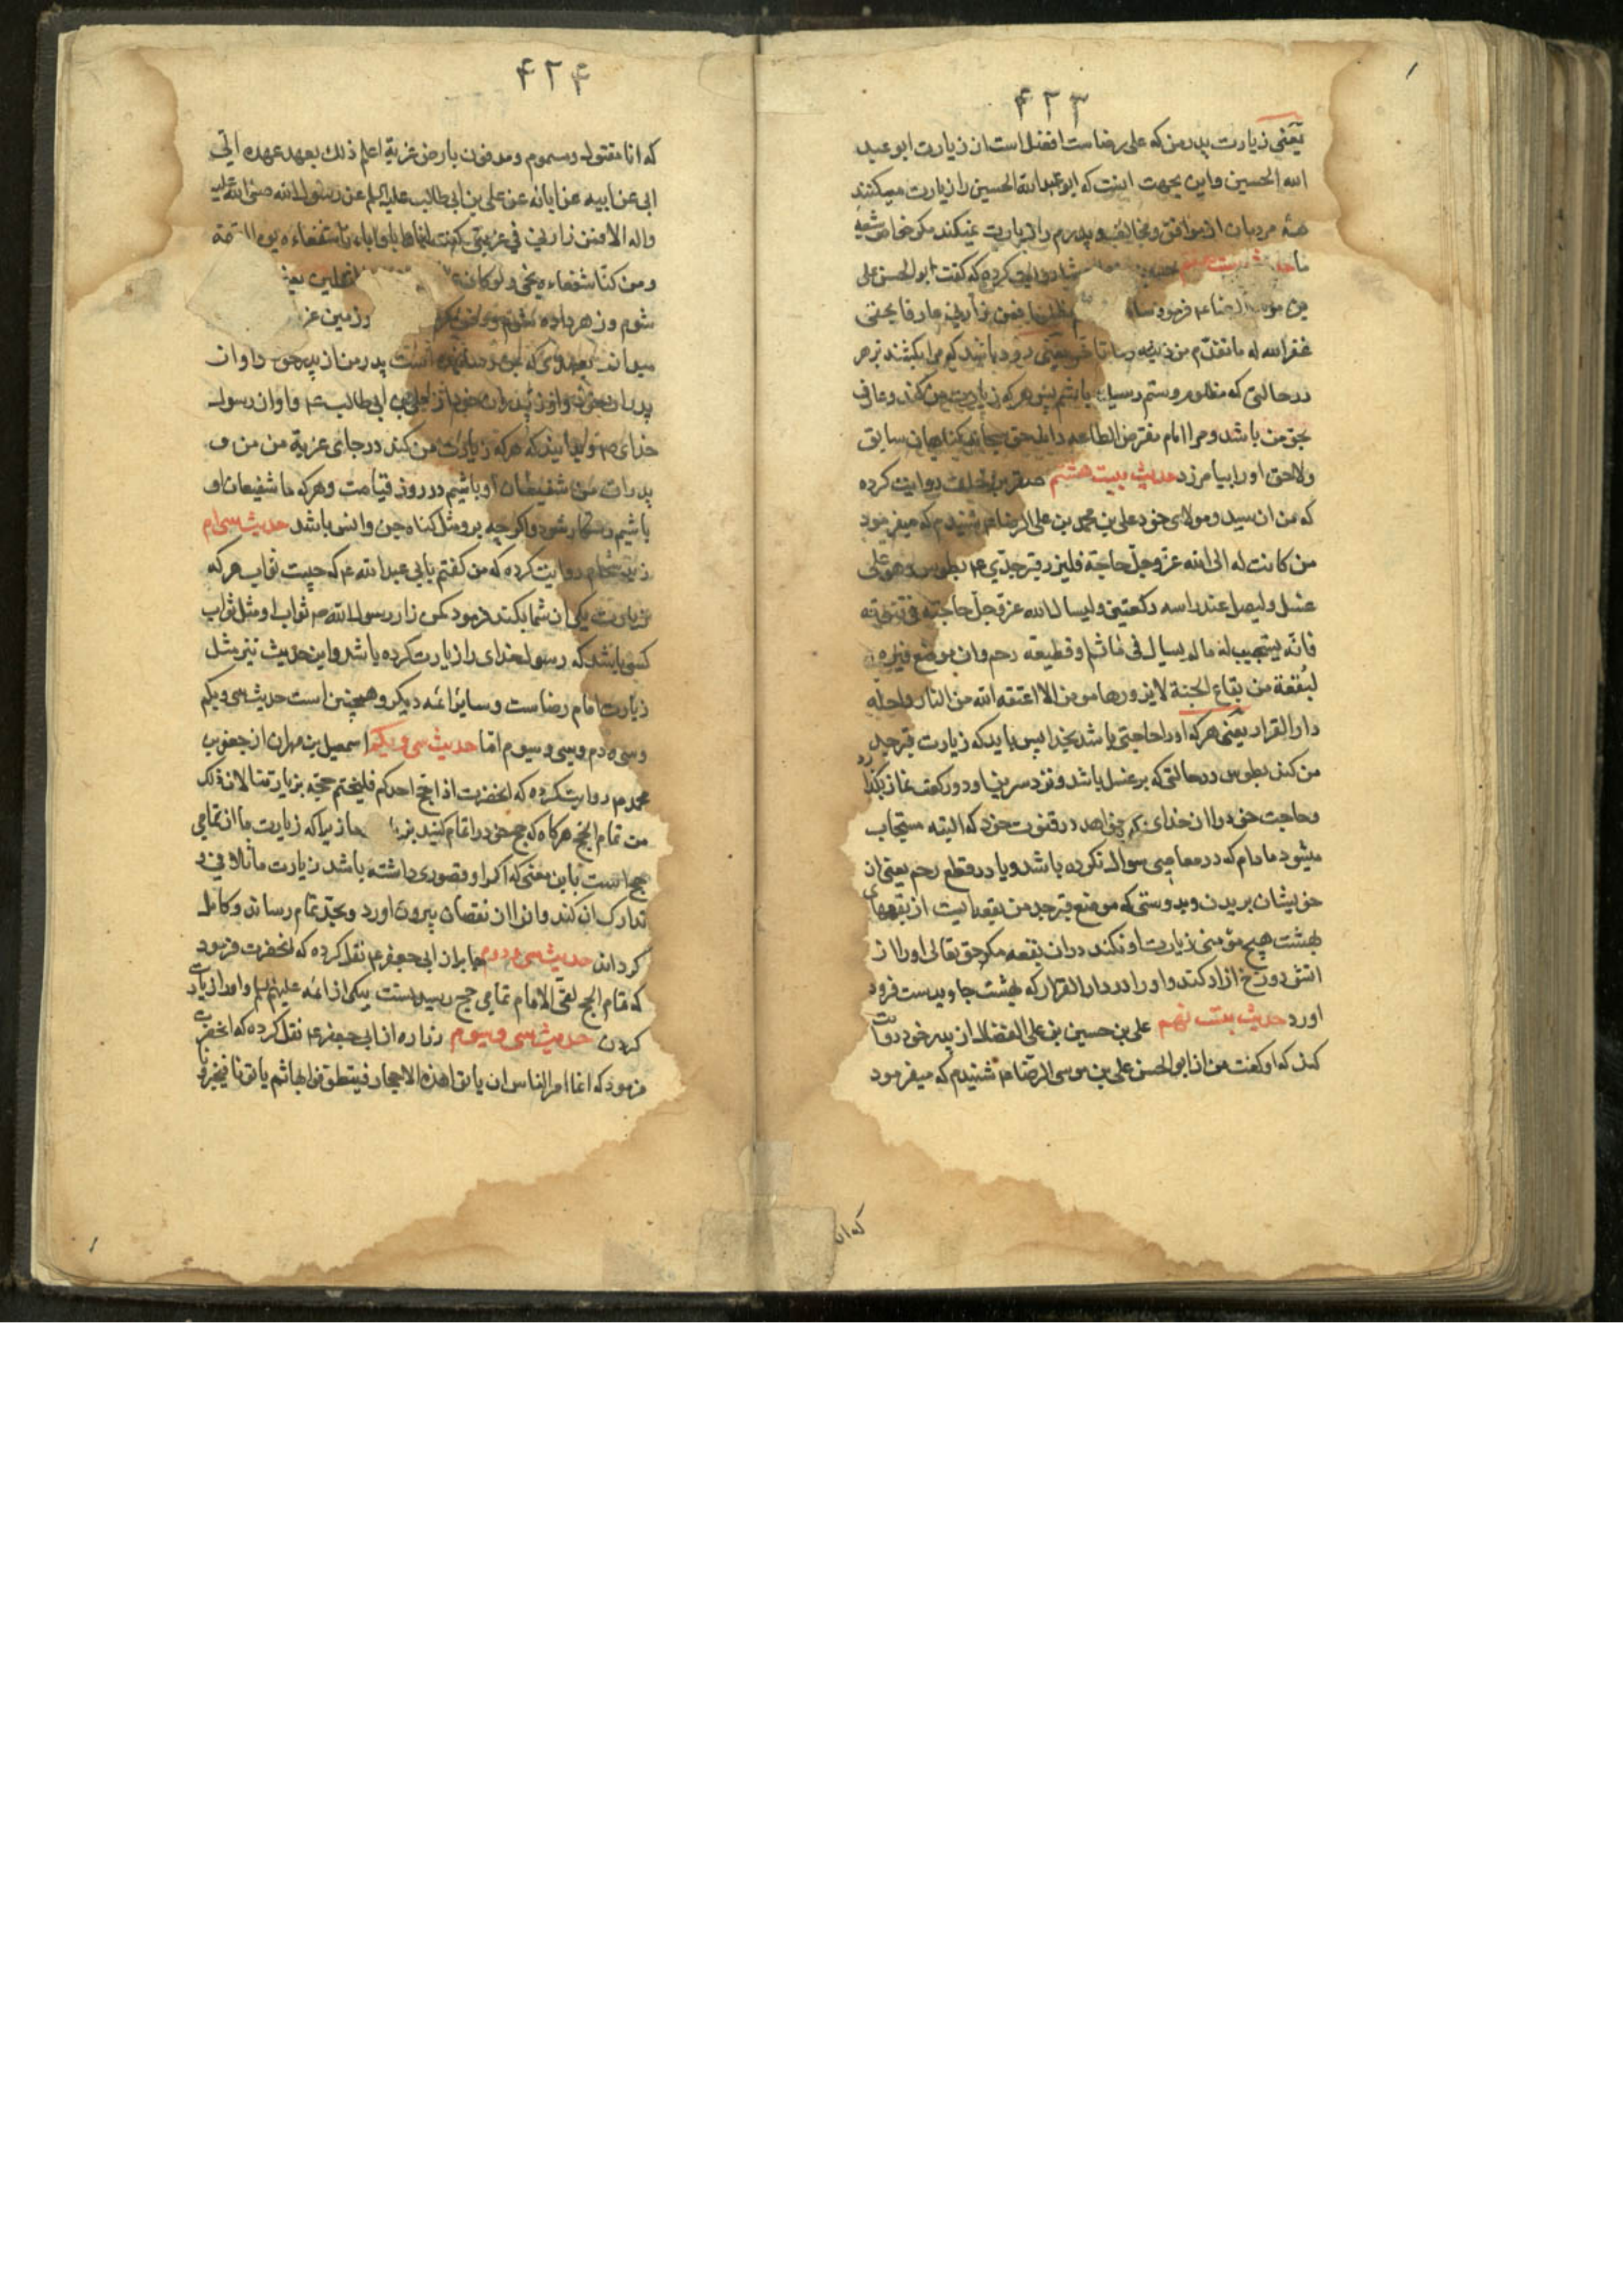 ۴۲۳
یعنی زیارت پدر من که علی رضاست افضل است از زیارت ابو عبد
الله الحسین و این بجهت اینست که ابو عبدالله الحسین را زیارت میکنند
همهٔ مردمان از موافق و مخالف و پدرم را زیارت نمیکند مکر خاص شیعهٔ
ما کرده که کفت ابو الحسن علی
بن موسی الرضا ع فرمود فمن زارنی عارفا بحقی
غفر الله له ما تقدم من ذنبه وما تاخر یعنی زود باشد که مرا بکشند بزهر
در حالتی که مظلوم و ستم رسیده باشم پس هر که زیارت من کند و عارف
بحق من باشد و مرا امام مفترض الطاعه داند حق سبحانه کناهان سابق
ولاحق او را بیامرزد حدیث بیست هشتم صقر بن خلف روایت کرده
که من از سید و مولای خود علی بن محمد بن علی الرضا ع شنیدم که میفرمود
من کانت له الی الله عز وجل حاجة فلیزر قبر جدی ع بطوس وهو علی
غسل ولیصل عند راسه رکعتین ولیسال الله عز وجل حاجته فی قنوته
فانه یستجیب له ما لم یسال فی ماثم او قطیعة رحم وان موضع قبره
لبقعة من بقاع الجنة لا یزورها مومن الا اعتقه الله من النار واحله
دار القرار یعنی هر که او را حاجتی باشد بخدا پس باید که زیارت قبر جد
من کند بطوس در حالتی که بر غسل باشد و نزد سر بنیاد و دو رکعت نماز بکذارد
و حاجت خود را از خدای بخواهد در قنوت خود که البته مستجاب
میشود مادام که در معاصی سوال نکرده باشد و یا در قطع رحم یعنی از
خویشان بریدن و بدرستی که موضع قبر جد من بقعه ایست از بقعهای
بهشت هیچ مؤمنی زیارت او نکند در ان بقعه مکر حق تعالی او را از
اتش دوزخ ازاد کند و او را در دار القرار که بهشت جاوید ست فرود
اورد حدیث بیست نهم علی بن حسین بن علی الفضال از پدر خود روایت
کند که او کفت من از ابو الحسن علی بن موسی الرضا ع شنیدم که میفرمود
که انا
۴۲۴
که انا مقتول ومسموم ومدفون بارض غربة اعلم ذلک بعهد عهده الی
ابی عن ابیه عن ابائه عن علی بن ابی طالب علیه السلم عن رسول الله صلی الله علیه
واله الا فمن زارنی فی غربتی کنت انا وابائی شفعاءه یوم القیمة
ومن کنا شفعاءه نجی ولو کان
شوم و زهر داده شوم و زمین غر
میدانم پدر من از پدر خود و او از
پدران خود و او از پدران خود از علی بن ابی طالب ع و او از رسول
خدای ص و بدانید که هر که زیارت من کند در جای غربة من من و
پدران من شفیعان او باشیم در روز قیامت و هر که ما شفیعان او
باشیم رستکار شود و اکرچه برو مثل کناه جن و انس باشد حدیث سی ام
زید شحام روایت کرده که من کفتم بابی عبد الله ع که چیست ثواب هر که
زیارت یکی از شما بکند فرمود کمن زار رسول الله ص ثواب او مثل ثواب
کسی باشد که رسول خدای را زیارت کرده باشد و این حدیث نیز مثل
زیارت امام رضا ست و سایر ائمه دیکر و همچنین است حدیث سی و یکم
و سی و دم و سی و سیوم اما حدیث سی و یکم اسمعیل بن مهران از جعفر بن
محمد ع روایت کرده که انحضرت اذا حج احدکم فلیختم حجه بزیارتنا لان ذلک
من تمام الحج هر کاه که حج خود را تمام کنید زیرا که زیارت ما از تمامی
حج است باین معنی که اکر او قصوری داشته باشد زیارت ما تلافی و
تدارک ان کند و او را از ان نقصان بیرون اورد و بحد تمام رساند و کامل
کرداند حدیث سی و دوم جابر از ابی جعفر ع نقل کرده که انحضرت فرمود
که تمام الحج لقی الامام تمامی حج رسیدنست بیکی از ائمه علیهم السلم و او را زیارت
کردن حدیث سی و سیوم زراره از ابی جعفر ع نقل کرده که انحضرت
فرمود که انما امر الناس ان یاتوا هذه الاحجار فیتطوفوا بها ثم یاتونا فیخبرونا